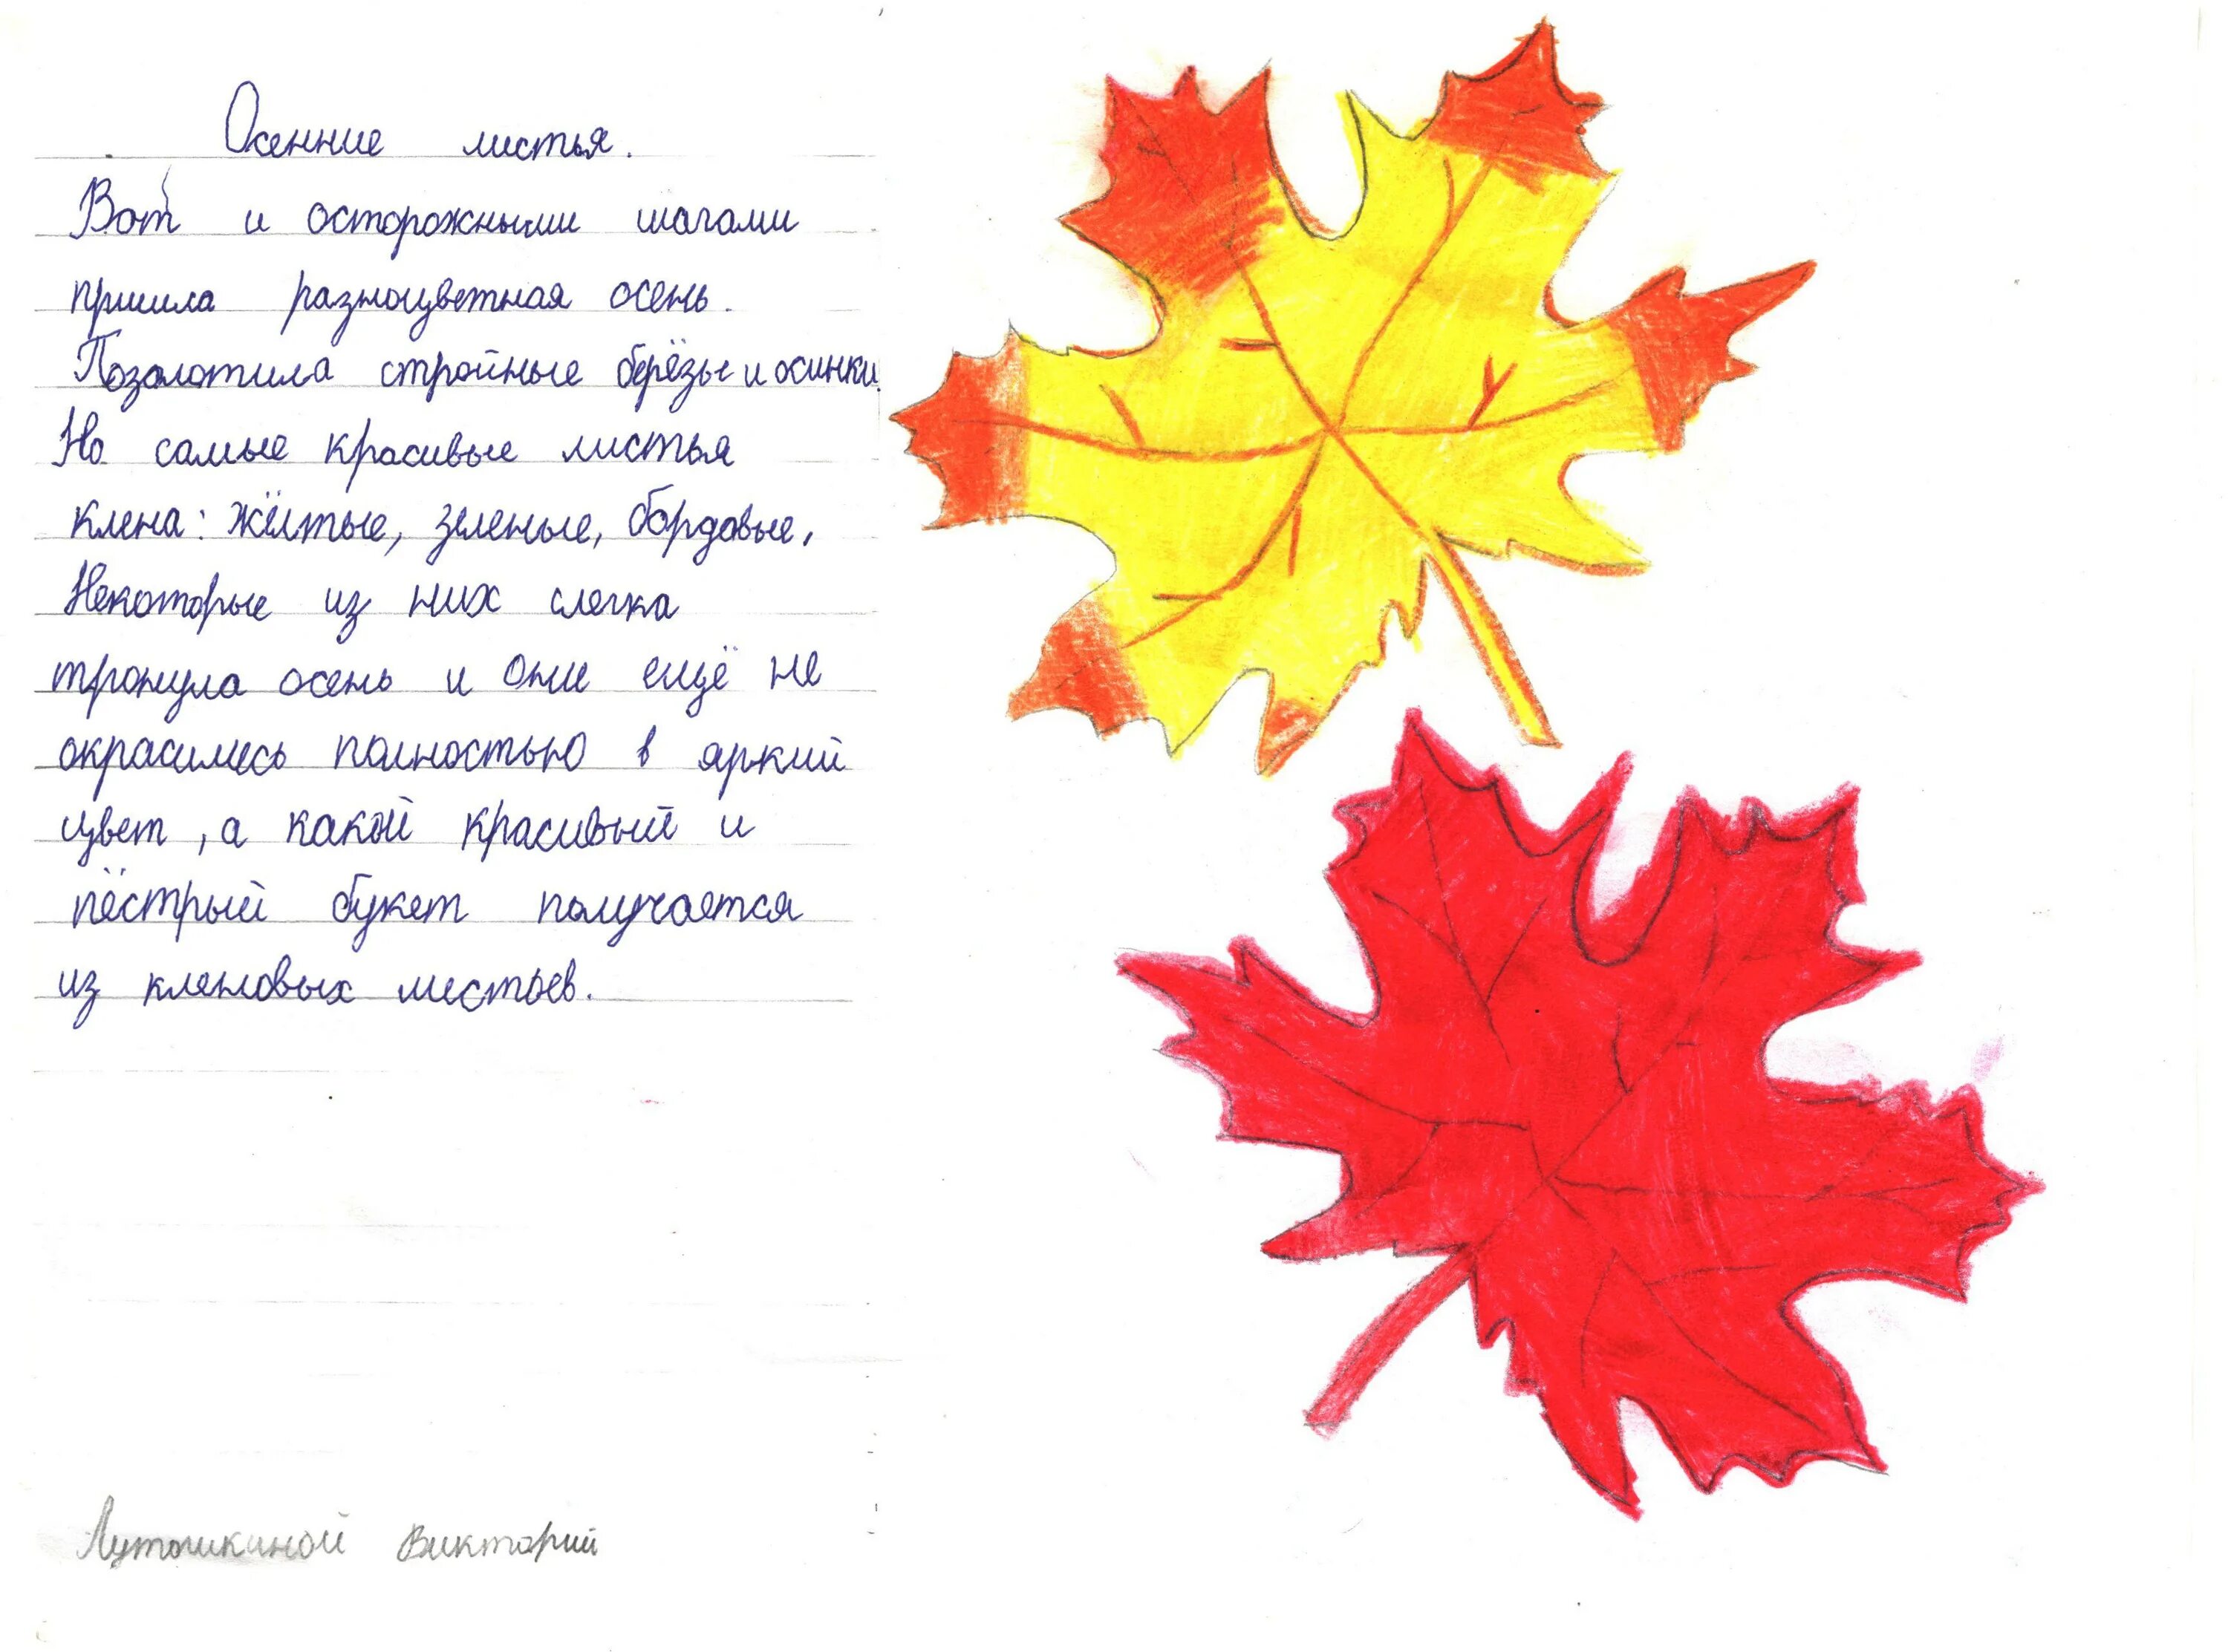 Осенние листья.
Вот и осторожными шагами
пришла разноцветная осень.
Позолотила стройные берёзы и осинки.
Но самые красивые листья
клена: жёлтые, зеленые, бордовые,
Некоторые из них слегка
тронула осень и они ещё не
окрасились полностью в яркий
цвет, а какой красивый и
пёстрый букет получается
из кленовых листьев.
Лутошкиной Виктории